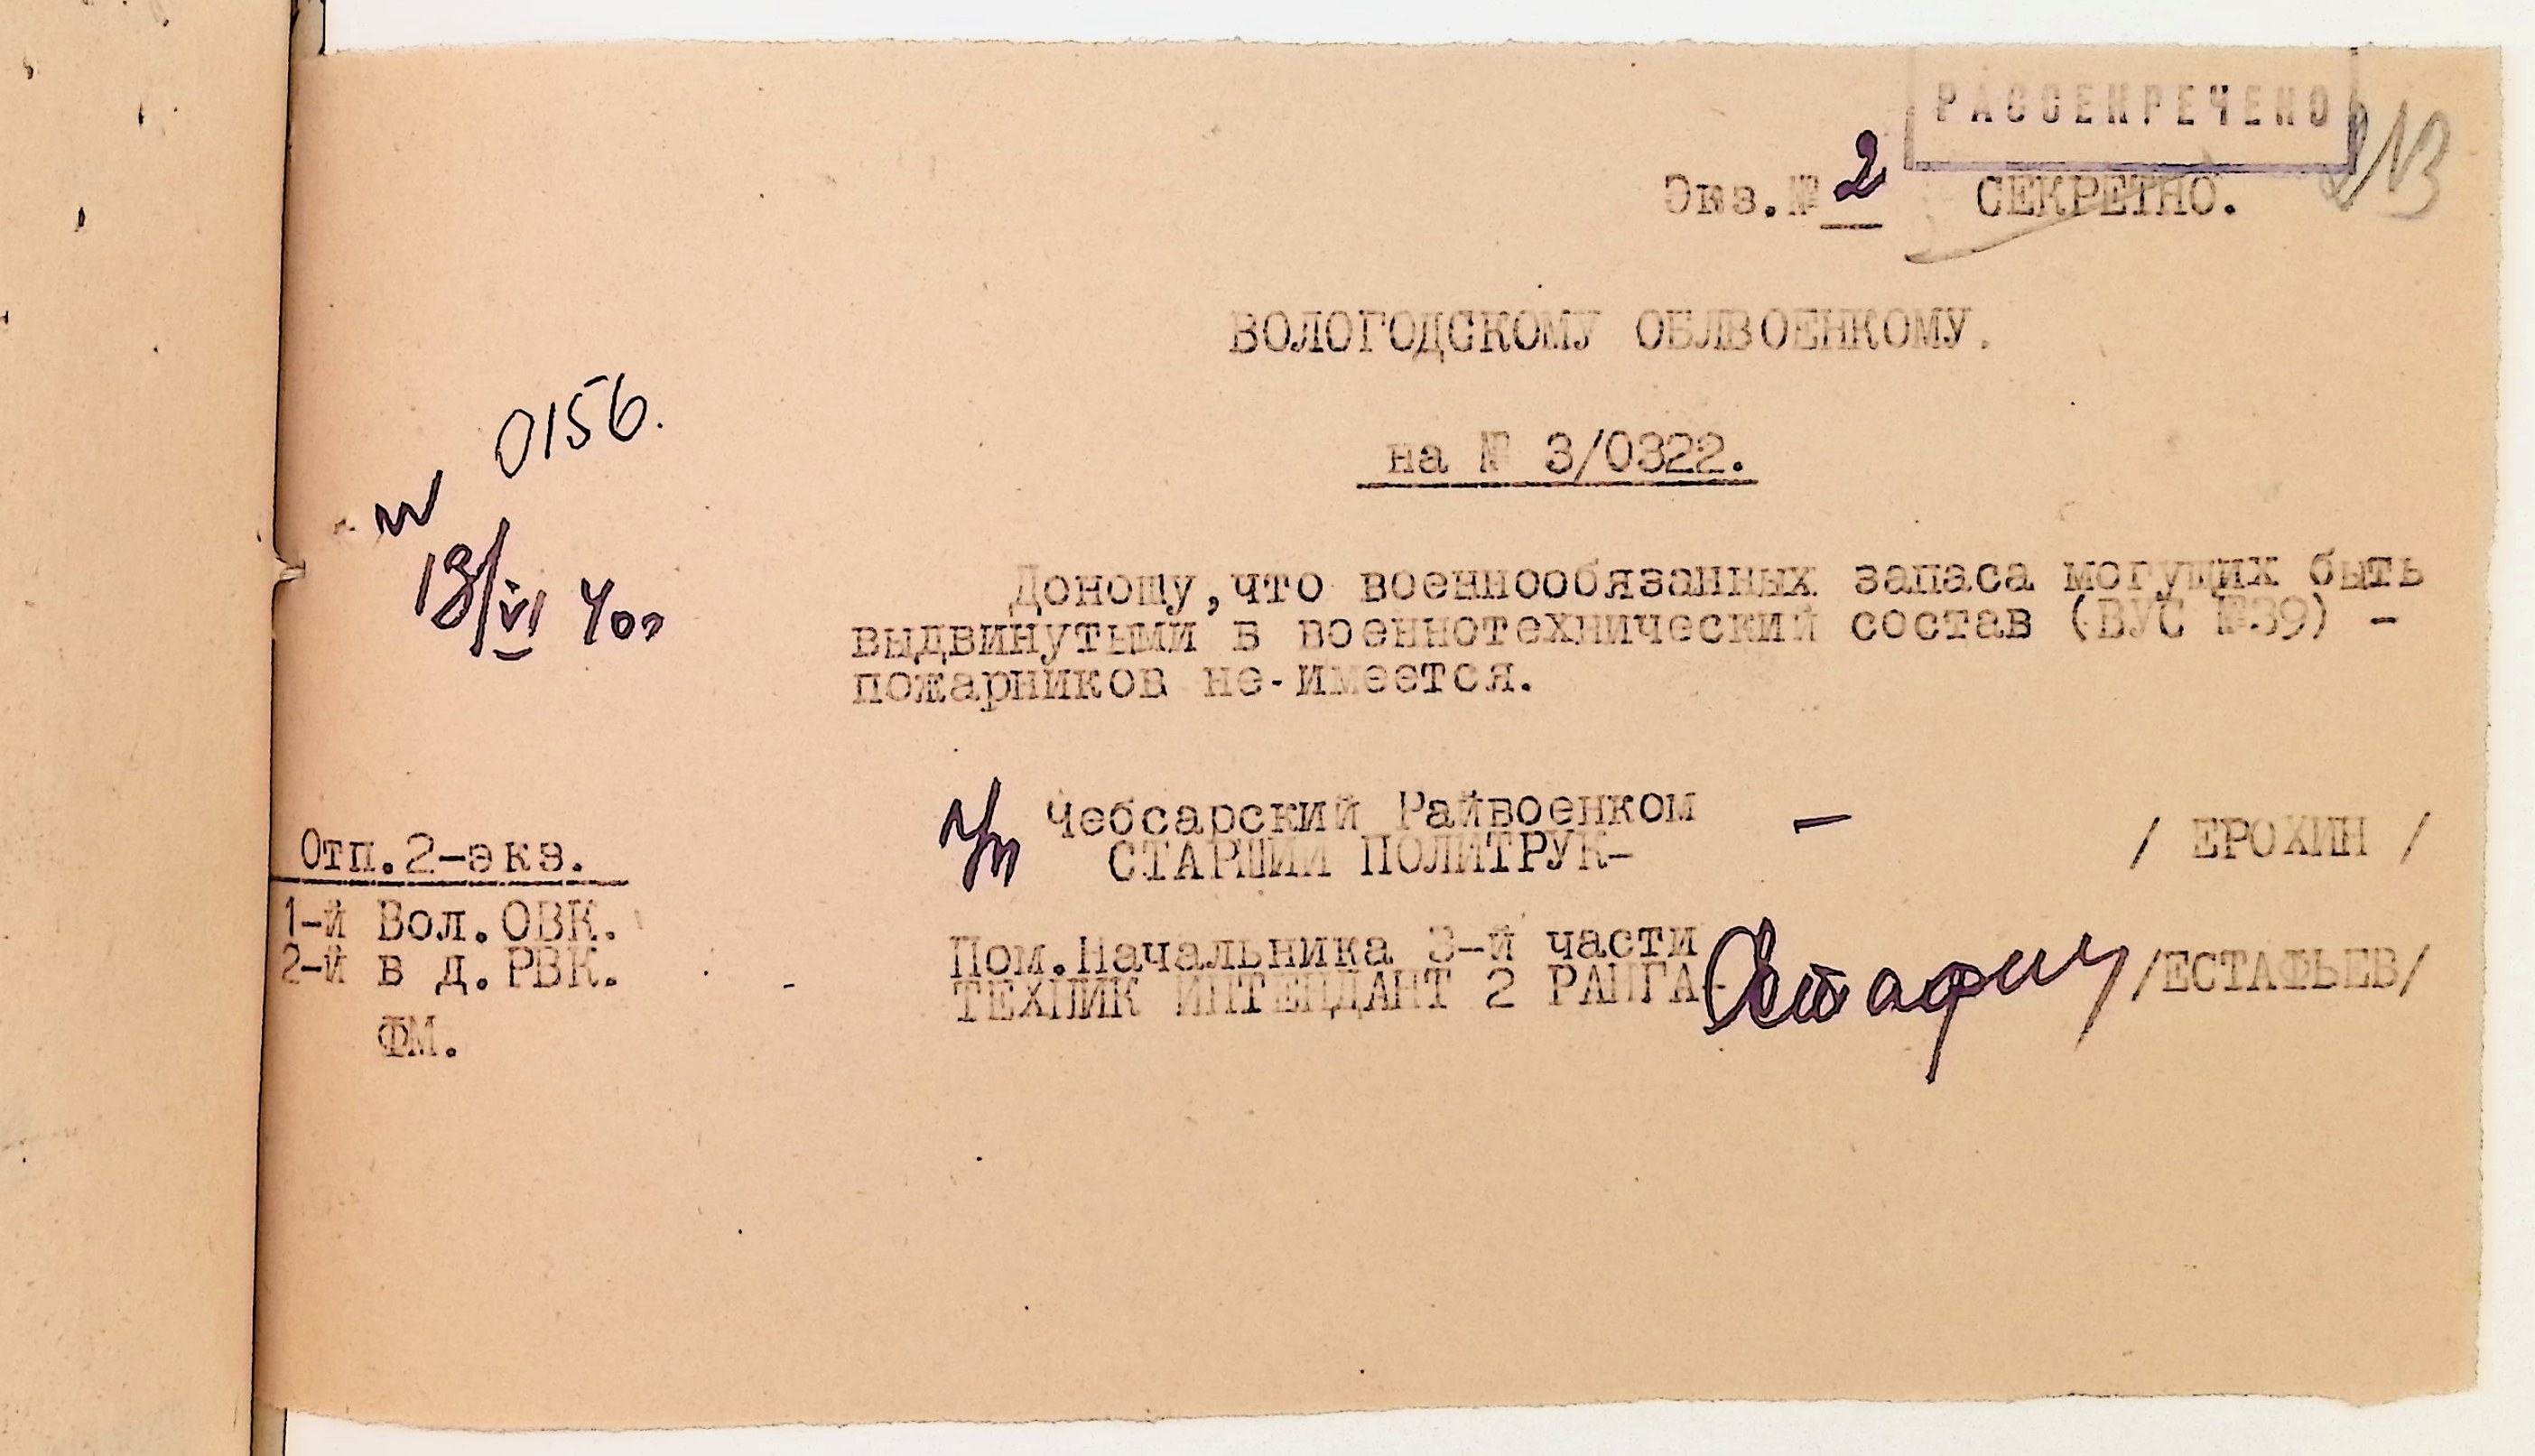 РАССЕКРЕЧЕНО
213
Экз.№ 2 СЕКРЕТНО.
ВОЛОГОДСКОМУ ОБЛВОЕНКОМУ.
на № 3/0322.
0156.
18/VI 40г
Доношу,что военнообязанных запаса могущих быть
выдвинутыми в военнотехнический состав (ВУС №39) -
пожарников не-имеется.
Чебсарский Райвоенком - / ЕРОХИН /
СТАРШИЙ ПОЛИТРУК-
Пом.Начальника 3-й части
ТЕХНИК ИНТЕНДАНТ 2 РАНГА- /ЕСТАФЬЕВ/
Отп.2-экз.
1-й Вол.ОВК.
2-й в д.РВК.
ФМ.